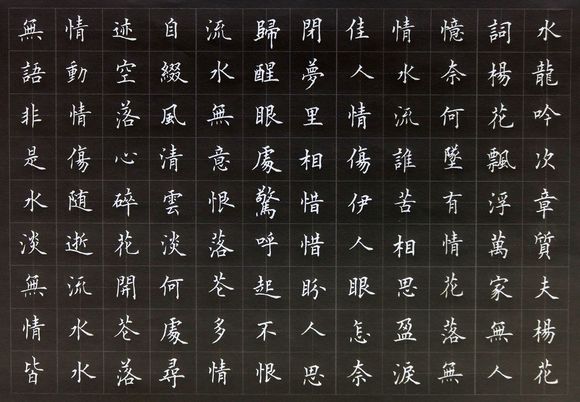 水龍吟次章質夫楊花
詞楊花飄浮萬家無人
憶奈何墜有情花落無
情水流誰苦相思盈淚
佳人情傷伊人眼怎奈
閉夢里相惜惜盼人思
歸醒眼處驚呼起不恨
流水無意恨落花多情
自綴風清雲淡何處尋
迹空落心碎花開花落
情動情傷随逝流水水
無語非是水淡無情皆